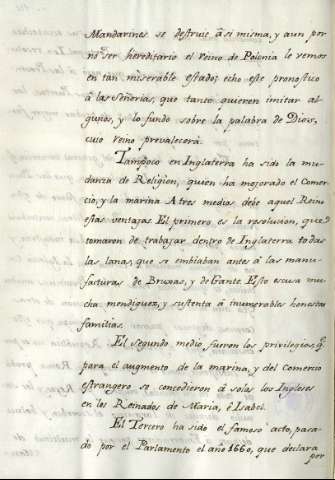 Mandarines se destruie â si misma, y aun por
no ser hereditario el reino de Polonia le vemos
en tan miserable estado; echo este pronostico
â las Señorias, que tanto quieren imitar al-
gunos, y lo fundo sobre la palabra de Dios,
cuio reino prevalecerà.
Tampoco en Inglaterra ha sido la mu-
danza de Religion, quien ha mejorado el Comer-
cio, y la marina A tres medios debe aquel Reino
estas ventajas. El primero es la resolucion, que
tomaron de trabajar dentro de Inglaterra todas
las lanas, que se embiaban antes â las manu-
facturas de Bruxas, y de Gante Esto escusa mu-
cha mendiguez, y sustenta â inumerables honestas
familias.
El segundo medio fueron los privilegios, q.
para el augmento de la marina, y del Comercio
estrangero se concedieron â solos los Ingleses
en los Reinados de Maria, è Isabel.
El Tercero ha sido el famoso acto, pasa-
do por el Parlamento el año 1660, que declara
por